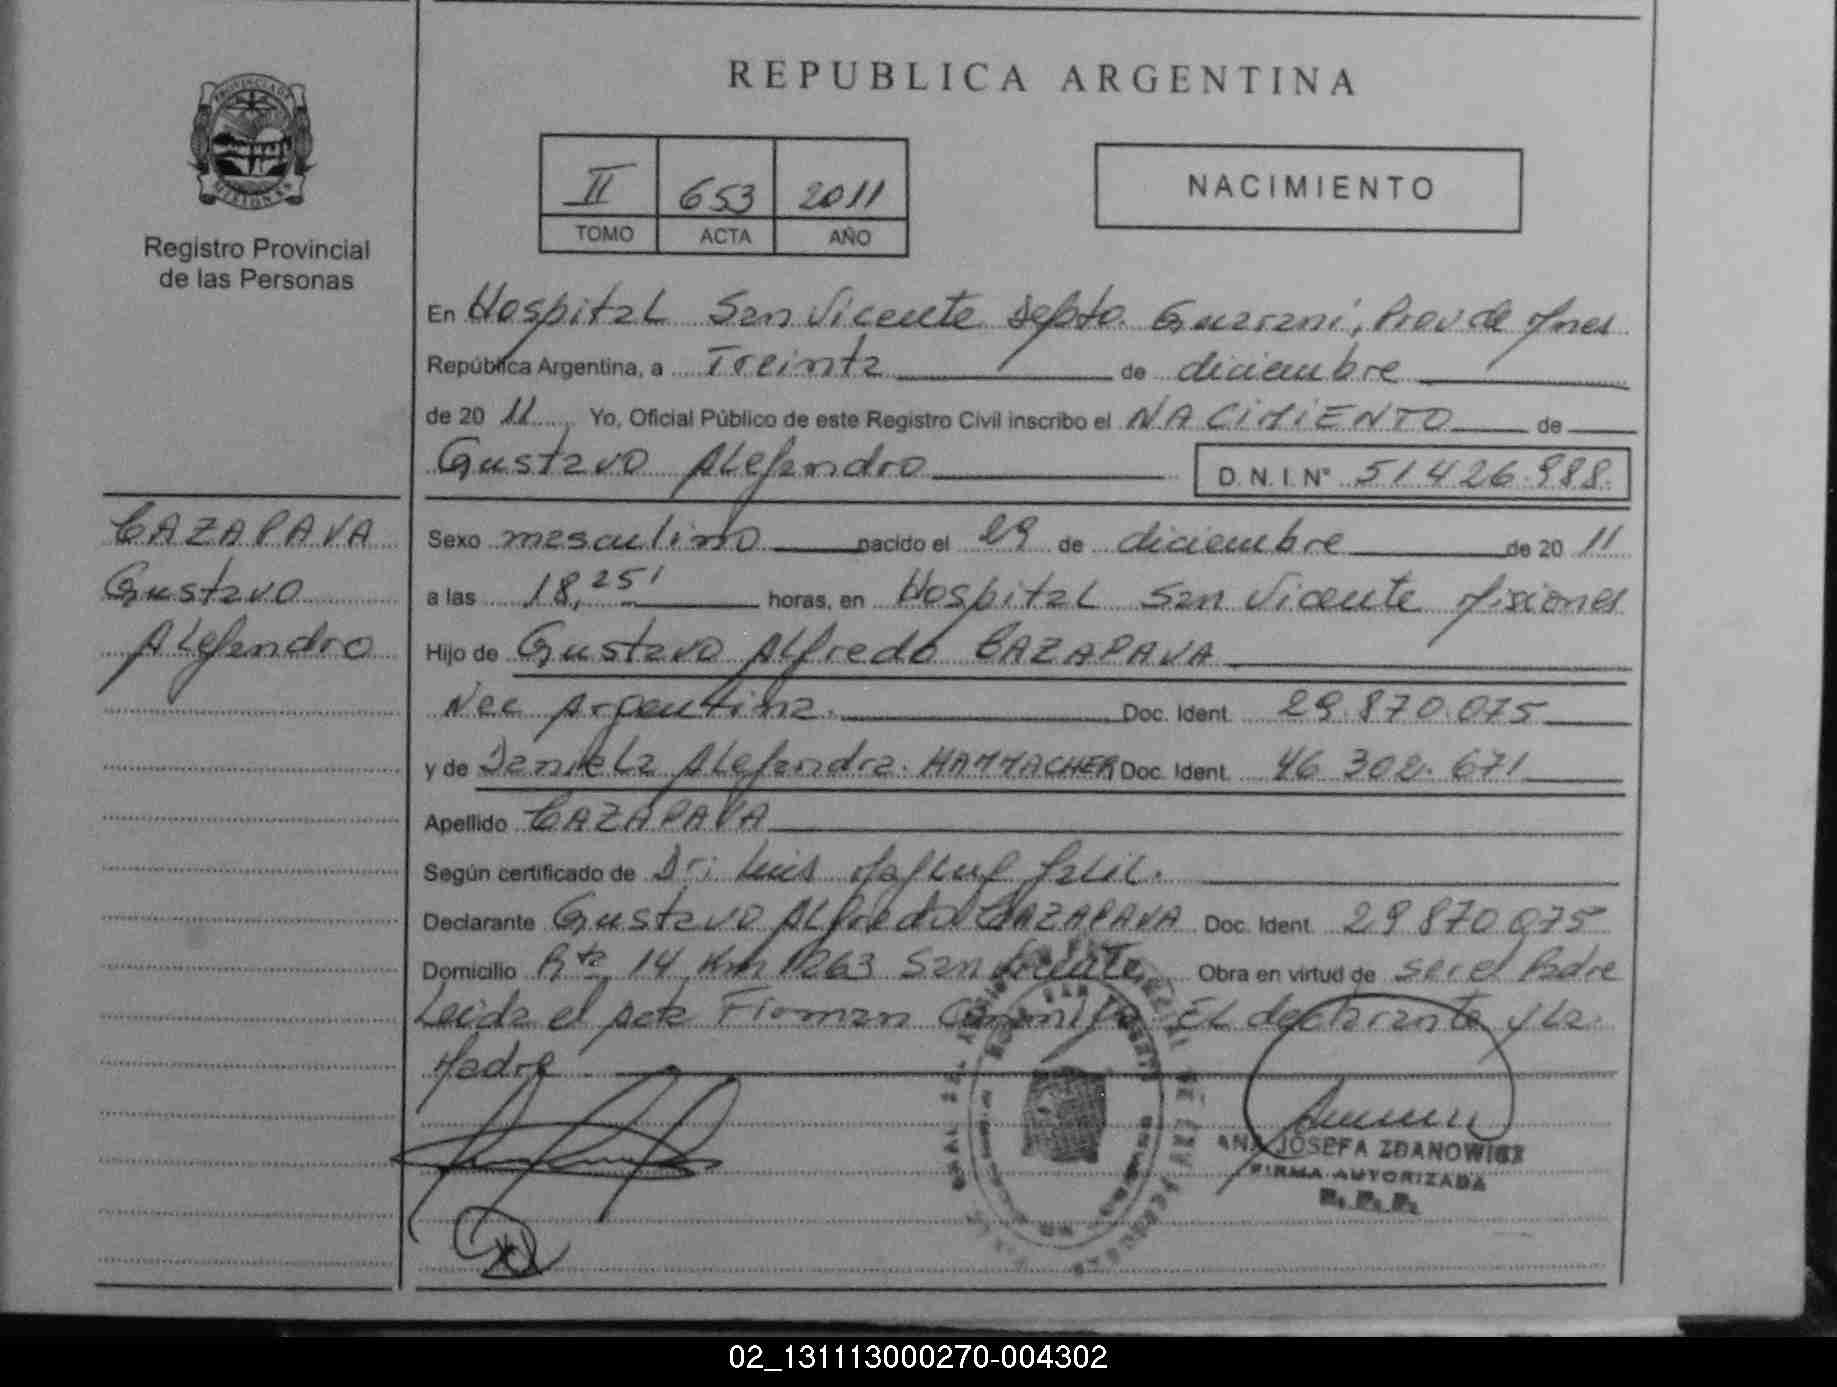 REPUBLICA ARGENTINA
PROVINCIA DE
MISIONES
Registro Provincial
de las Personas
II 653 2011
TOMO ACTA AÑO
NACIMIENTO
En Hospital San Vicente Depto. Guarani, Prov de Mnes
República Argentina, a Treinta de diciembre
de 20 11 Yo, Oficial Público de este Registro Civil inscribo el NACIMIENTO de
Gustavo Alejandro D.N.I. N° 51.426.988.
CAZAPAVA
Gustavo
Alejandro
Sexo masculino nacido el 29 de diciembre de 20 11
a las 18,25' horas, en Hospital San Vicente Misiones
Hijo de Gustavo Alfredo CAZAPAVA
Nac Argentina. Doc. Ident. 29.870.075
y de Daniela Alejandra. HAMMACHER Doc. Ident. 46.302.671
Apellido CAZAPAVA
Según certificado de Dr: Luis Jalil.
Declarante Gustavo Alfredo CAZAPAVA Doc. Ident. 29870075
Domicilio Rta 14 Km 1263 San Vicente Obra en virtud de ser el Padre
Leida el acta Firman Conmigo EL declarante y La
Madre
ANA JOSEFA ZDANOWICZ
FIRMA AUTORIZADA
R.P.P.
02_131113000270-004302